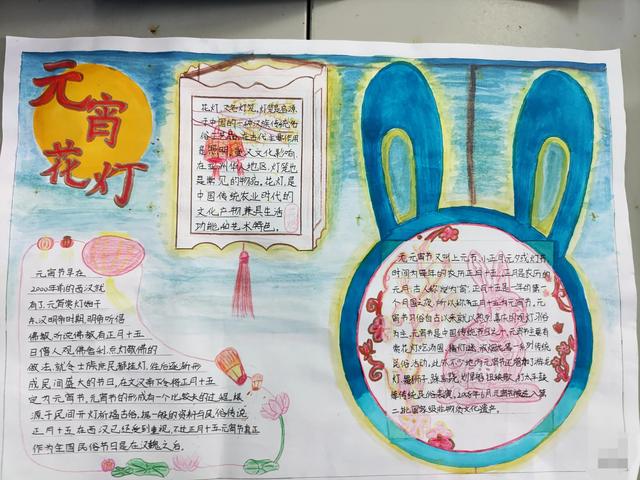 元宵
花灯
花灯,又名灯笼,灯笼是起源
于中国的一种汉族传统民
俗工艺品,在古代主要作用
是照明,受汉文化影响,
在亚洲华人地区,灯笼也
是常见的物品。花灯是
中国传统农业时代的
文化产物,兼具生活
功能和艺术特色。
元宵节早在
2000年前的西汉就
有了,元宵赏灯始于
东汉明帝时期,明帝
佛教,听说佛教有正月十五
日僧人观佛舍利,点灯敬佛的
做法,就令士族庶民都挂灯,
成民间盛大的节日,在汉文帝下令将正月十五
定为元宵节。元宵节的形成有一个比较长的过程,
源于民间开灯祈福古俗,据一般的资料与民俗传说
正月十五在西汉已经受到重视,不过正月十五元宵节真正
作为全国民俗节日是在汉魏之后。
元宵节又叫上元节,小正月元夕或灯节
时间为每年的农历正月十五,正月是农历的
元月,古人称"夜"为"宵",正月十五是一年的第一
个月圆之夜,所以称正月十五为元宵节。元
宵节习俗自古以来就以热
为主,元宵节是中国传统节日之一,元宵节主要有
赏花灯吃汤圆、猜灯谜、放烟花等一系列传统
民俗活动,此外不少地方元宵节还增加了游龙
灯、舞狮子、踩高跷、划旱船扭秧歌、打太平鼓
等传统民俗表演,2008年6月元宵节被选入第
二批国家级非物质文化遗产。